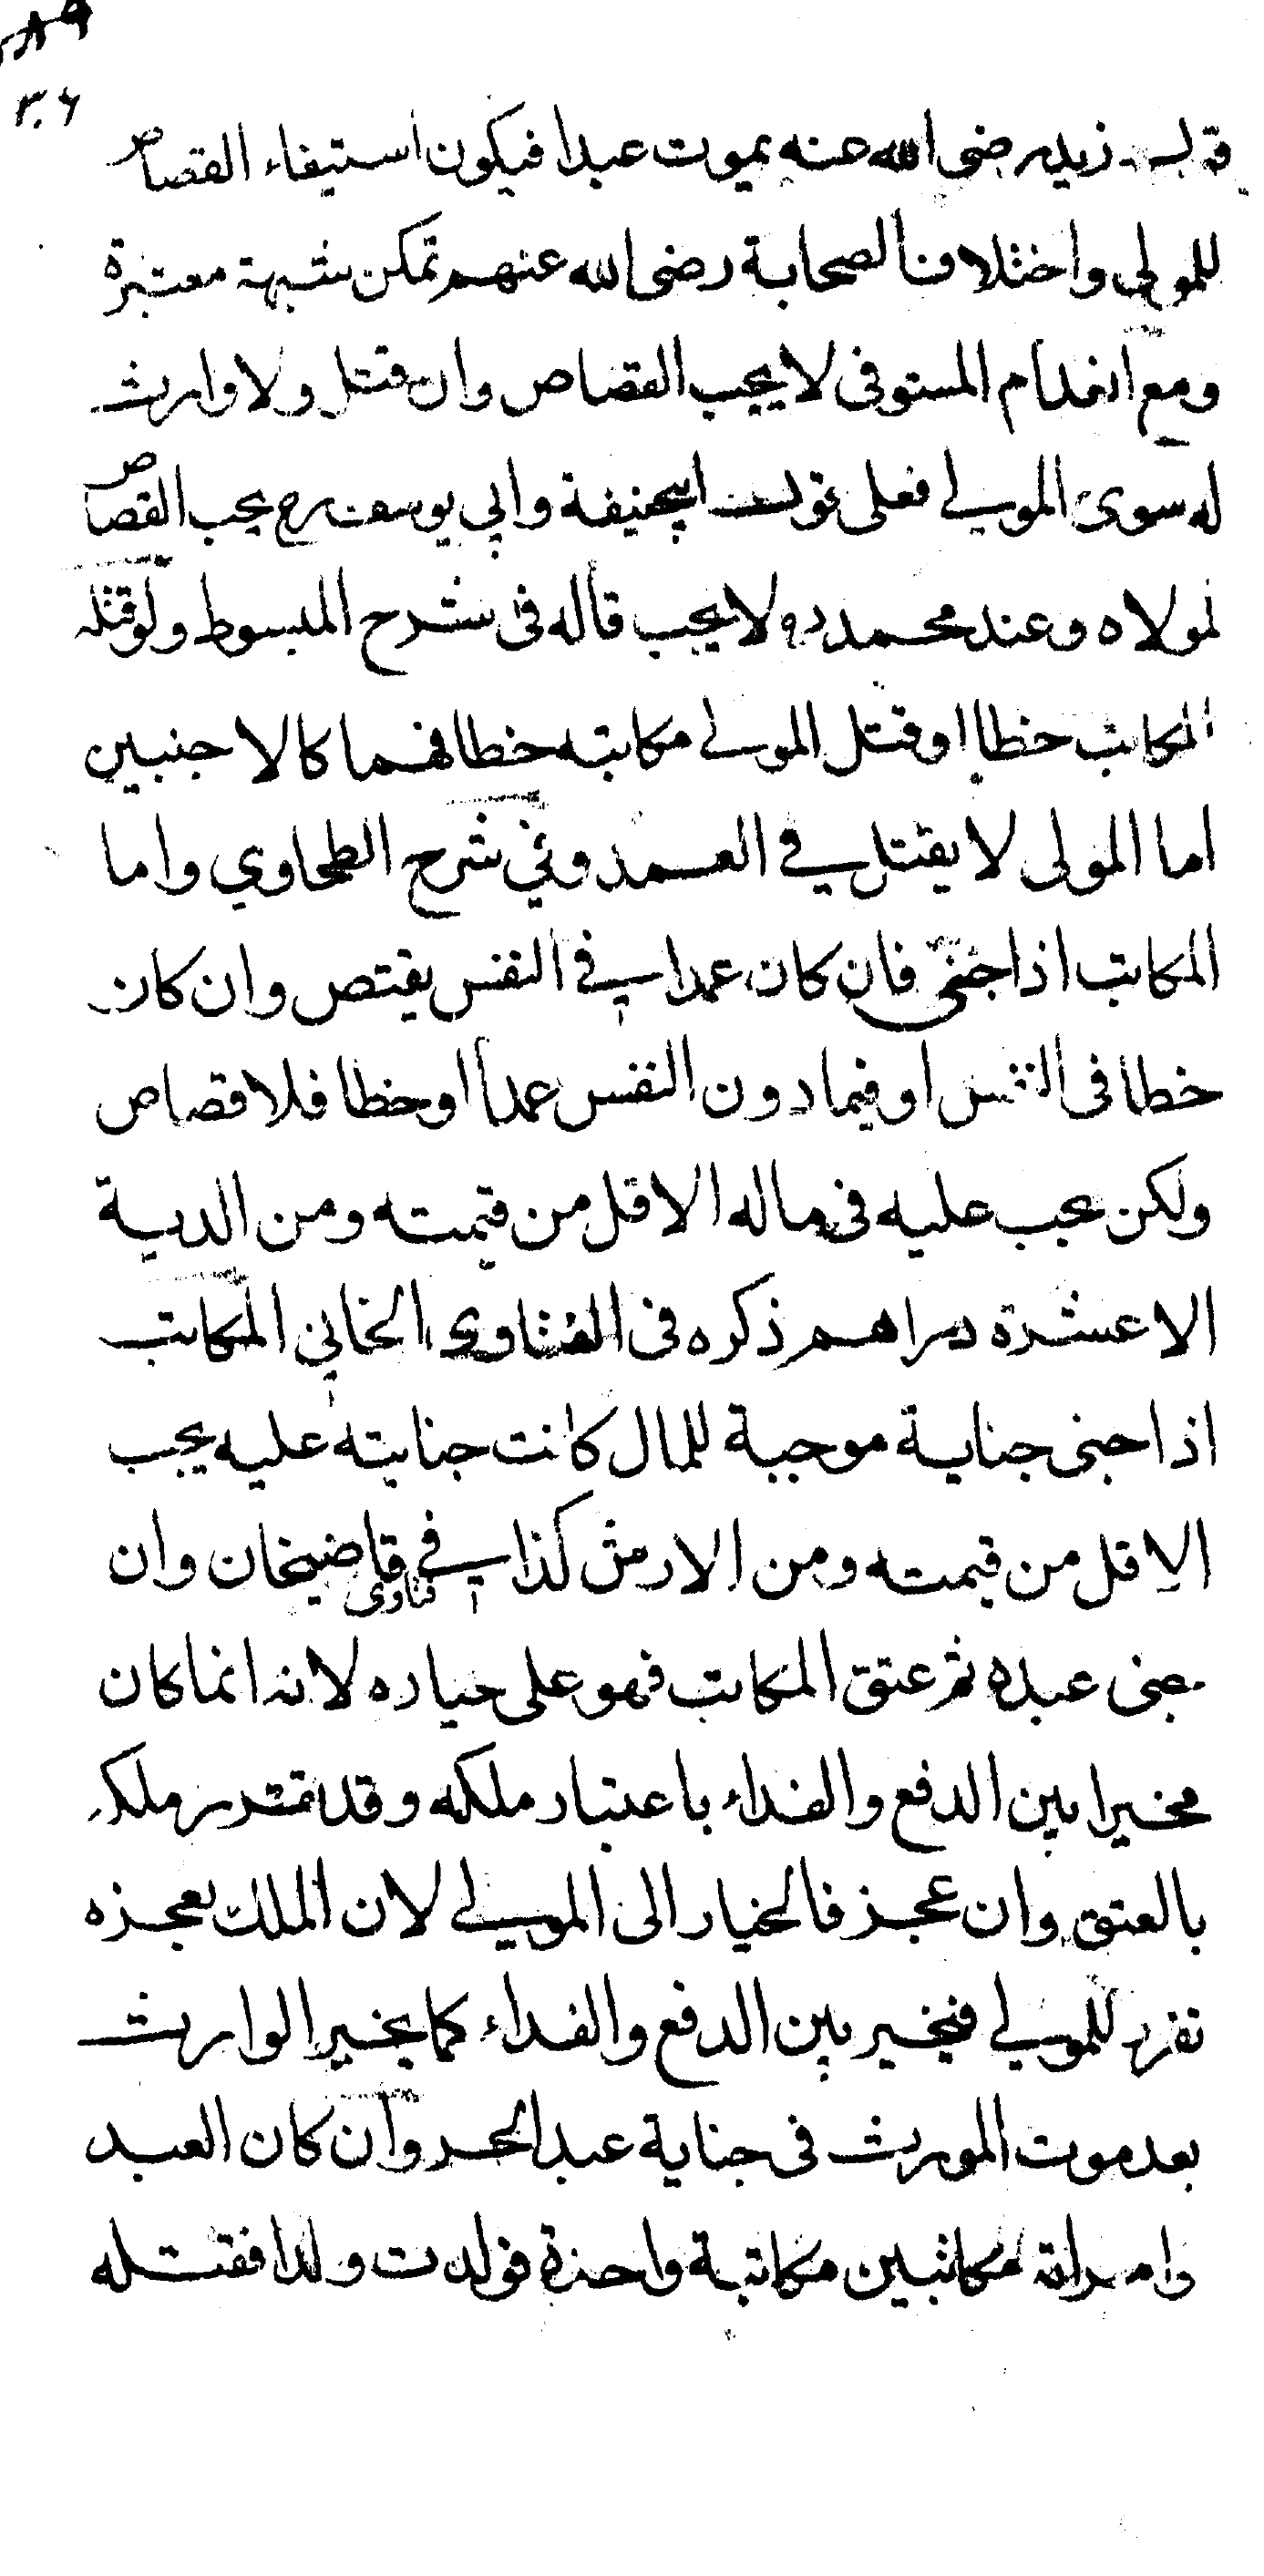 ٣٠٦
زيد رضى الله عنه يموت عبدا فيكون استيفاء القصاص
للمولى واختلاف الصحابة رضى الله عنهم تمكن شبهة معتبرة
ومع انعدام المستوفى لا يجب القصاص وان قتل ولا وارث
له سوى المولى فعلى قول ابيحنيفة وابي يوسف رح يجب القصاص
لمولاه وعند محمد رح لا يجب قاله فى شرح المبسوط ولو قتله
المكاتب خطأ او قتل المولى مكاتبه خطا فهما كالاجنبين
اما المولى لا يقتل في العمد وفي شرح الطحاوي واما
المكاتب اذا جنى فان كان عمدا في النفس يقتص وان كان
خطا فى النفس او فيما دون النفس عمدا او خطا فلا قصاص
ولكن يجب عليه فى ماله الاقل من قيمته ومن الدية
الا عشرة دراهم ذكره فى الفتاوى الخاني المكاتب
اذا جنى جناية موجبة للمال كانت جنايته عليه يجب
الاقل من قيمته ومن الارش كذا في فتاوى قاضيخان وان
جنى عبده ثم عتق المكاتب فهو على خياره لانه انما كان
مخيرا بين الدفع والفداء باعتبار ملكه وقد تقرر ملكه
بالعتق وان عجز فالخيار الى المولى لان الملك بعجزه
تقرر للمولى فيخير بين الدفع والفداء كما يخير الوارث
بعد موت المورث فى جناية عبد الحر وان كان العبد
وامراته مكاتبين مكاتبة واحدة فولدت ولدا فقتله